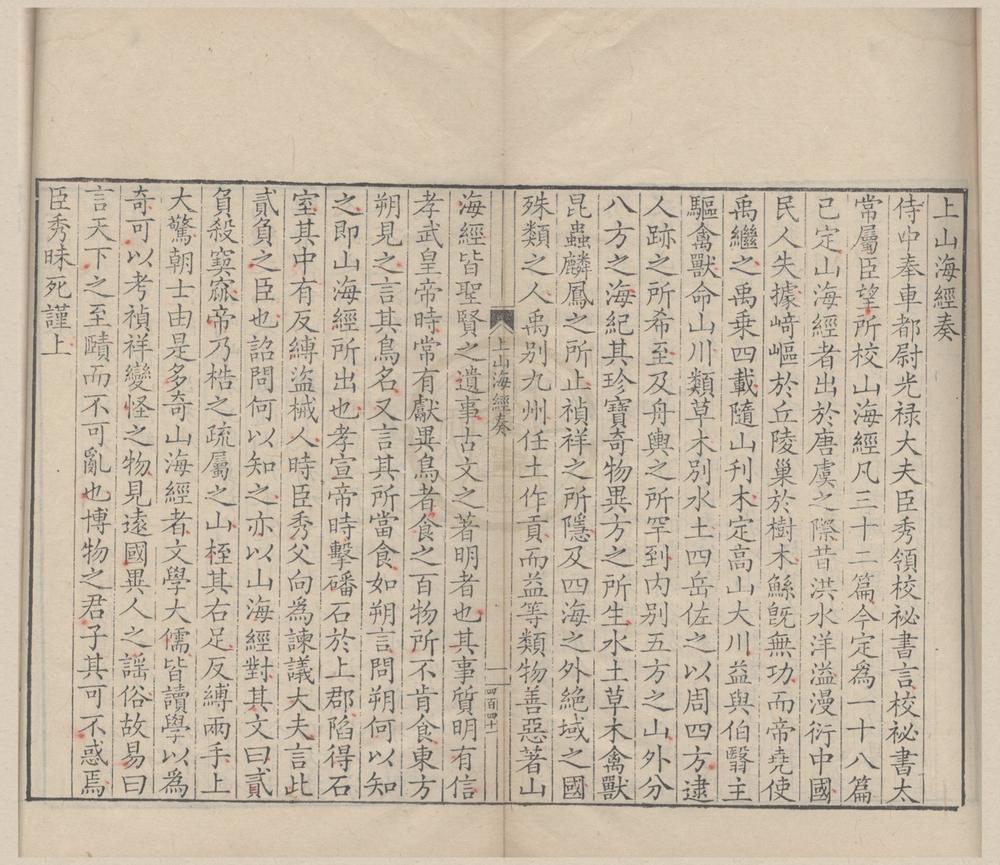 上山海經奏
侍中奉車都尉光禄大夫臣秀領校祕書言校祕書太
常屬臣望所校山海經凡三十二篇今定爲一十八篇
已定山海經者出於唐虞之際昔洪水洋溢漫衍中國
民人失據崎嶇於丘陵巢於樹木鯀旣無功而帝堯使
禹繼之禹乗四載隨山刋木定高山大川益與伯翳主
驅禽獸命山川類草木別水土四岳佐之以周四方逮
人跡之所希至及舟輿之所罕到内别五方之山外分
八方之海紀其珍寶奇物異方之所生水土草木禽獸
昆蟲麟鳳之所止禎祥之所隱及四海之外絶域之國
殊類之人禹别九州任土作貢而益等類物善惡著山
上山海經奏
一
四百四十
海經皆聖賢之遺事古文之著明者也其事質明有信
孝武皇帝時常有獻異鳥者食之百物所不肯食東方
朔見之言其鳥名又言其所當食如朔言問朔何以知
之即山海經所出也孝宣帝時擊磻石於上郡陷得石
室其中有反縛盜械人時臣秀父向為諫議大夫言此
貳負之臣也詔問何以知之亦以山海經對其文曰貳
負殺窫窳帝乃梏之疏屬之山桎其右足反縛兩手上
大驚朝士由是多奇山海經者文學大儒皆讀學以為
奇可以考禎祥變怪之物見遠國異人之謡俗故易曰
言天下之至賾而不可亂也博物之君子其可不惑焉
臣秀昧死謹上